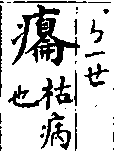 ㄅㄧㄝ
癟枯病
也